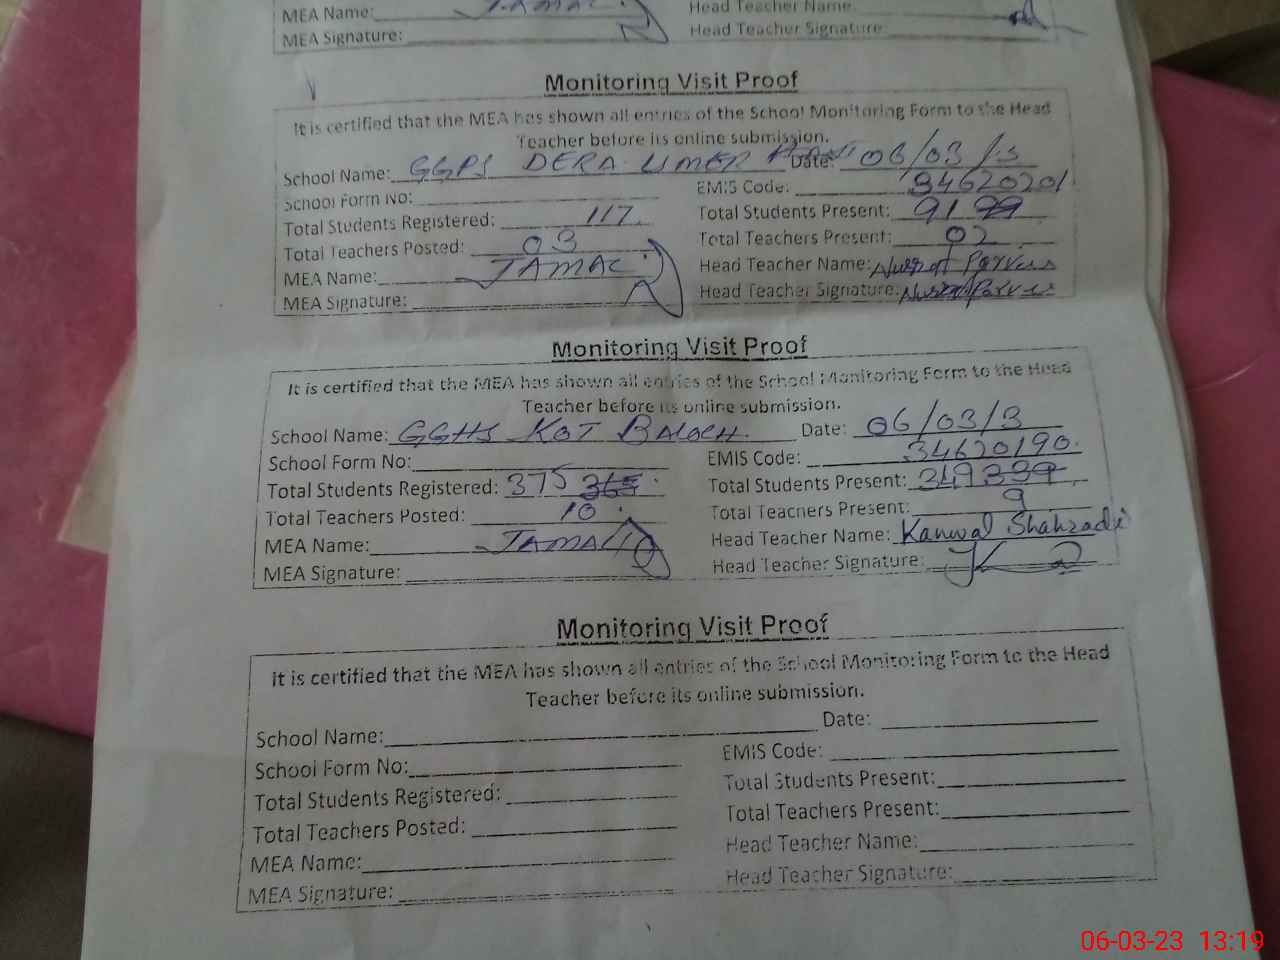 MEA Name: JAMAL Head Teacher Name:
MEA Signature: Head Teacher Signature:
Monitoring Visit Proof
It is certified that the MEA has shown all entries of the School Monitoring Form to the Head
Teacher before its online submission.
School Name: GGPS DERA UMER Date: 06/03/3
School Form No: EMIS Code: 34620201
Total Students Registered: 117 Total Students Present: 91 99
Total Teachers Posted: 03 Total Teachers Present: 02
MEA Name: JAMAL Head Teacher Name: Nusrat Parveen
MEA Signature: Head Teacher Signature: Nusrat Parveen
Monitoring Visit Proof
It is certified that the MEA has shown all entries of the School Monitoring Form to the Head
Teacher before its online submission.
School Name: GGHS KOT BALOCH Date: 06/03/3
School Form No: EMIS Code: 34620190
Total Students Registered: 375 365 Total Students Present: 349 339
Total Teachers Posted: 10 Total Teachers Present: 9
MEA Name: JAMAL Head Teacher Name: Kanwal Shahzadi
MEA Signature: Head Teacher Signature:
Monitoring Visit Proof
It is certified that the MEA has shown all entries of the School Monitoring Form to the Head
Teacher before its online submission.
School Name: Date:
School Form No: EMIS Code:
Total Students Registered: Total Students Present:
Total Teachers Posted: Total Teachers Present:
MEA Name: Head Teacher Name:
MEA Signature: Head Teacher Signature:
06-03-23 13:19